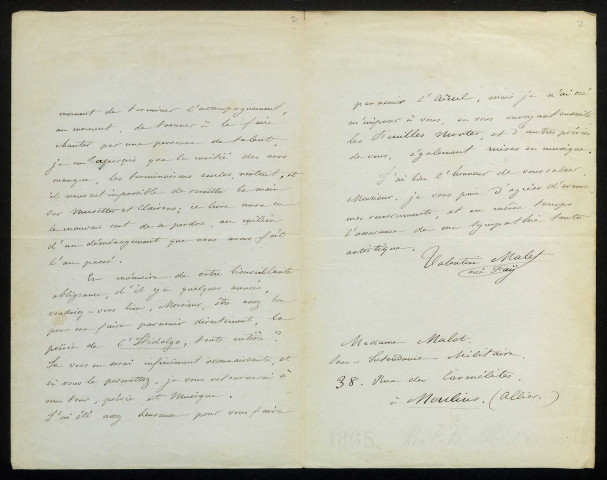 2
moment de terminer l'accompagnement,
au moment, de trouver à la faire
chanter par une personne de talent,
je m'aperçois que la moitié des vers
manque, les terminaisons seules, restent, et
il nous est impossible de remettre la main
sur Musettes et Clairons; ce livre nous en
le mauvais sort de a perdre, au milieu
d'un déménagement que nous avons fait
l'an passé.
En mémoire de votre bienveillante
obligeance, d'il y a quelques années,
voudriez-vous bien, Monsieur, être assez bon
pour me faire parvenir directement, la
poësie de l'Hidalgo, toute entière?
Je vous en serai infiniment reconnaissante, et
si vous le permettez, je vous retournerai à
mon tour, poésie et Musique.
J'ai été assez heureuse pour vous faire
2
parvenir l'Aïeul, mais je n'ai osé
m'imposer à vous, en vous envoyant ensuite
les Feuilles Mortes, et d'autres poésies
de vous, également mises en musique.
J'ai bien l'honneur de vous saluer,
Monsieur, je vous prie d'agréer d'avance
mes remerciements, et en même temps
l'assurance de ma sympathie toute
artistique.
Valentine Malet
née Faÿ
Madame Malet.
Sous-Intendance Militaire.
38. Rue des Carmélites.
à Moulins. (Allier.)